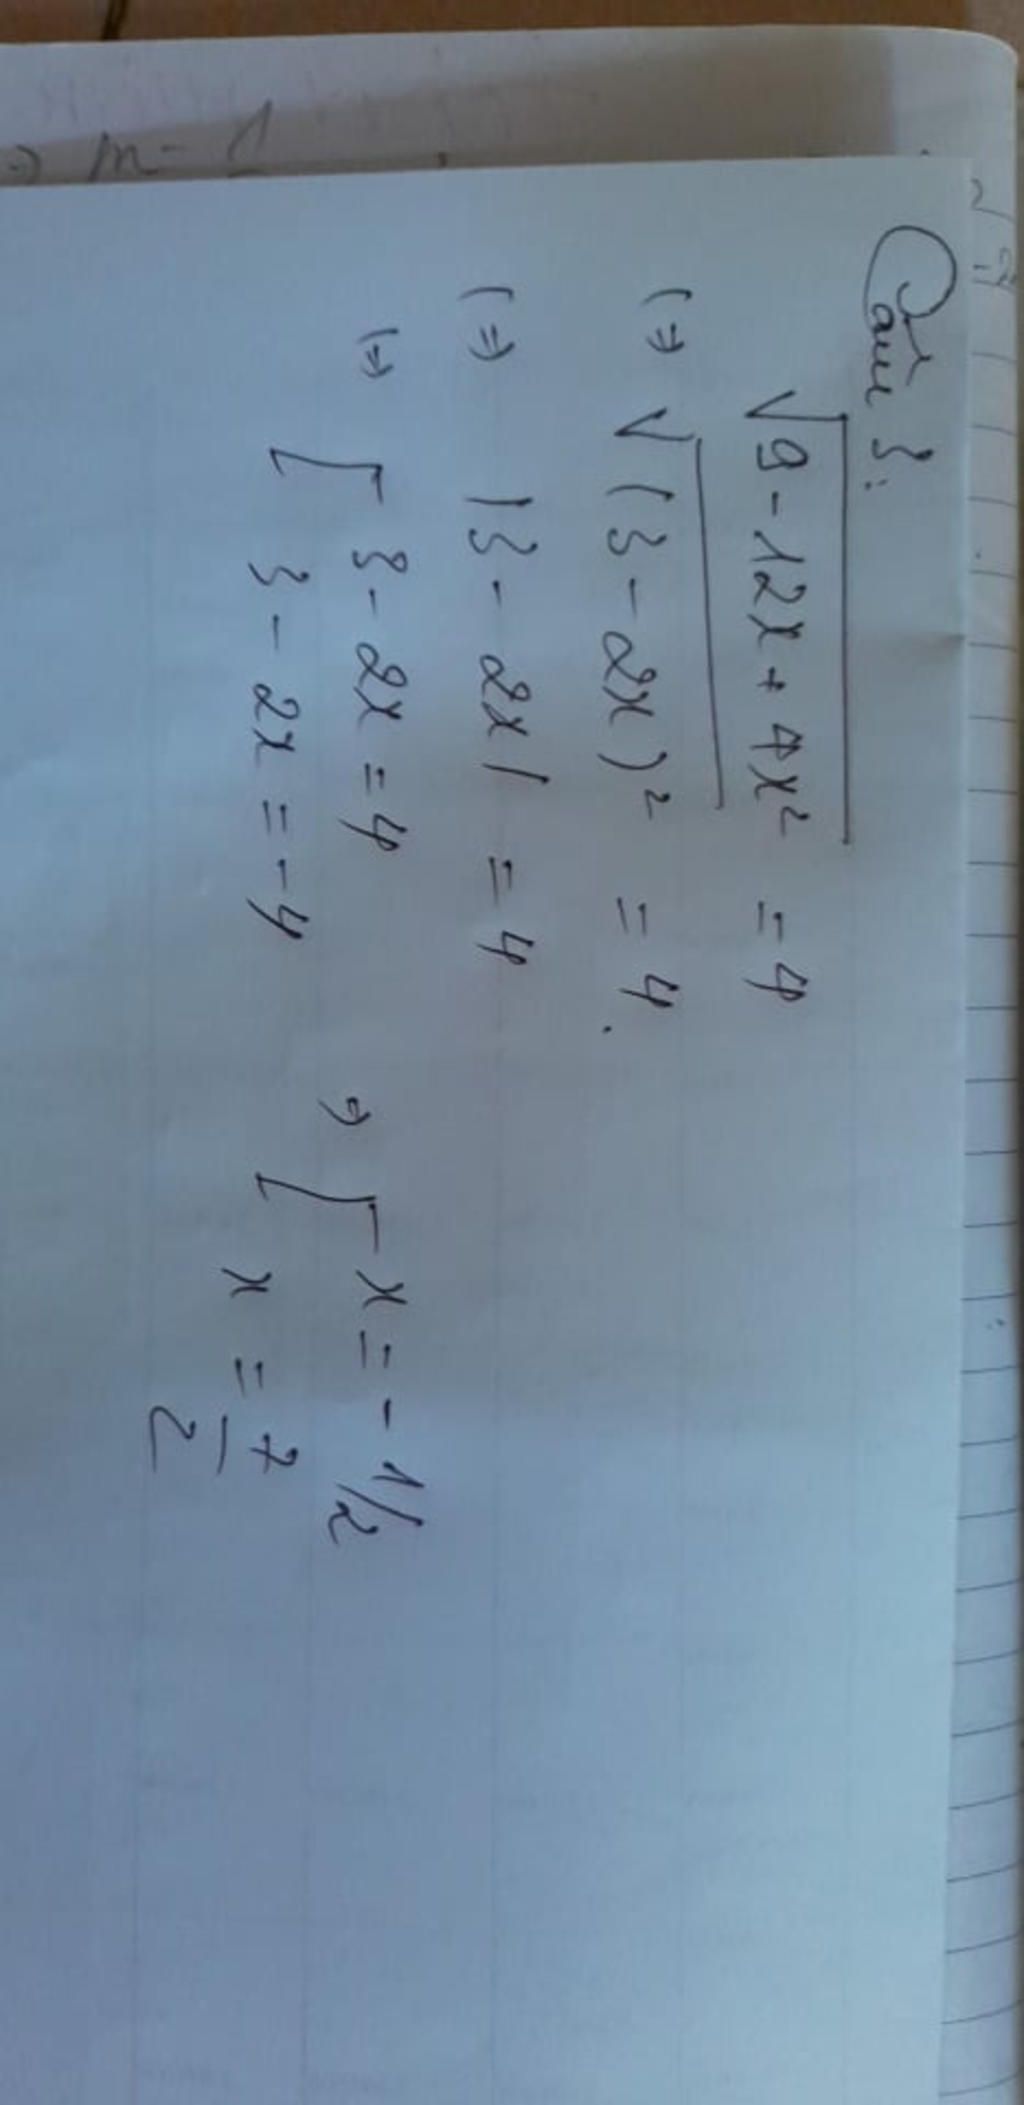 Câu 3:
√(9 - 12x + 4x²) = 4
(=) √(3 - 2x)² = 4.
(=) |3 - 2x| = 4
(=) [ 3 - 2x = 4
3 - 2x = -4
=) [ x = -1/2
x = 7/2
=) m - 1